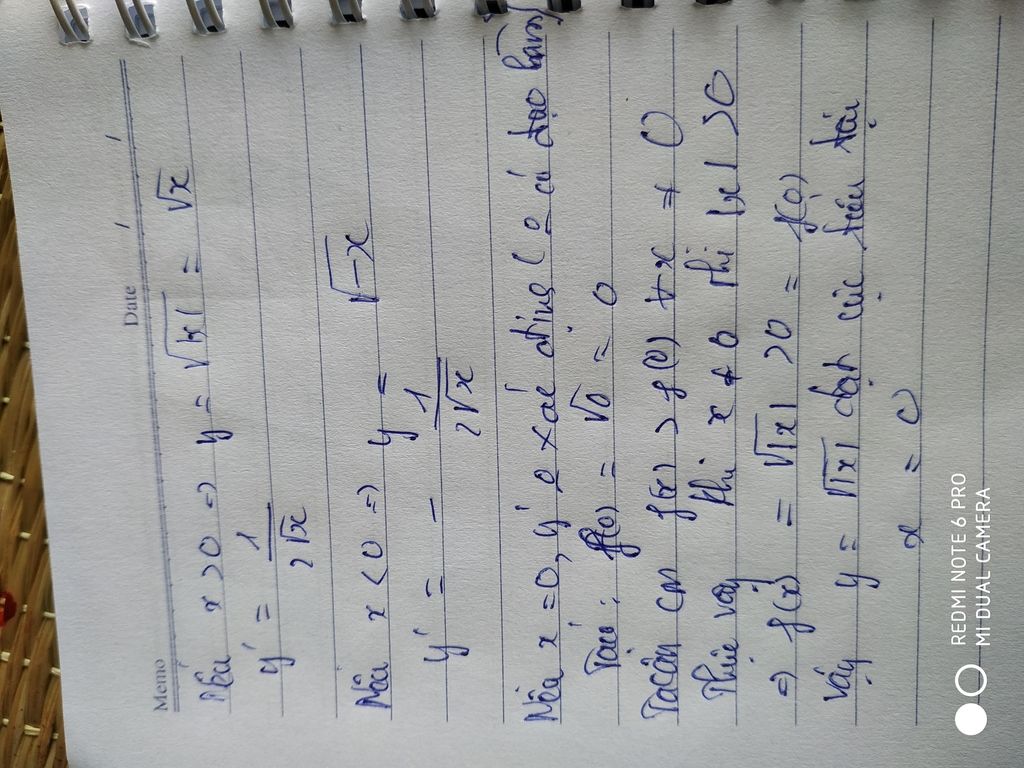 Memo Date / /
Nếu x > 0 => y = √|x| = √x
y' = 1/2√x
Nếu x < 0 => y = √-x
y' = - 1/2√x
Nếu x = 0, y' o xác định (o có đạo hàm)
Tacó: f(0) = √0 = 0
Ta cần cm f(x) > f(0) ∀x ≠ 0
Thực vậy khi x ≠ 0 thì |x| > 0
=> f(x) = √|x| > 0 = f(0)
Vậy y = √|x| đạt cực tiểu tại
x = 0
REDMI NOTE 6 PRO
MI DUAL CAMERA